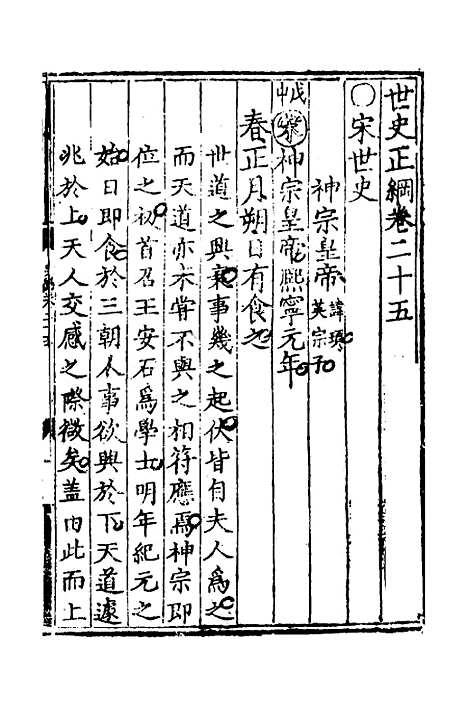 世史正綱卷二十五
○宋世史
神宗皇帝 諱頊英宗子
戊申 宋 神宗皇帝熙寧元年
春正月朔日有食之
世道之興衰事幾之起伏皆自夫人爲之
而天道亦未嘗不與之相符應焉神宗即
位之初首召王安石爲學士明年紀元之
始日即食於三朝人事欲興於下天道遽
兆於上天人交感之際微矣盖由此而上